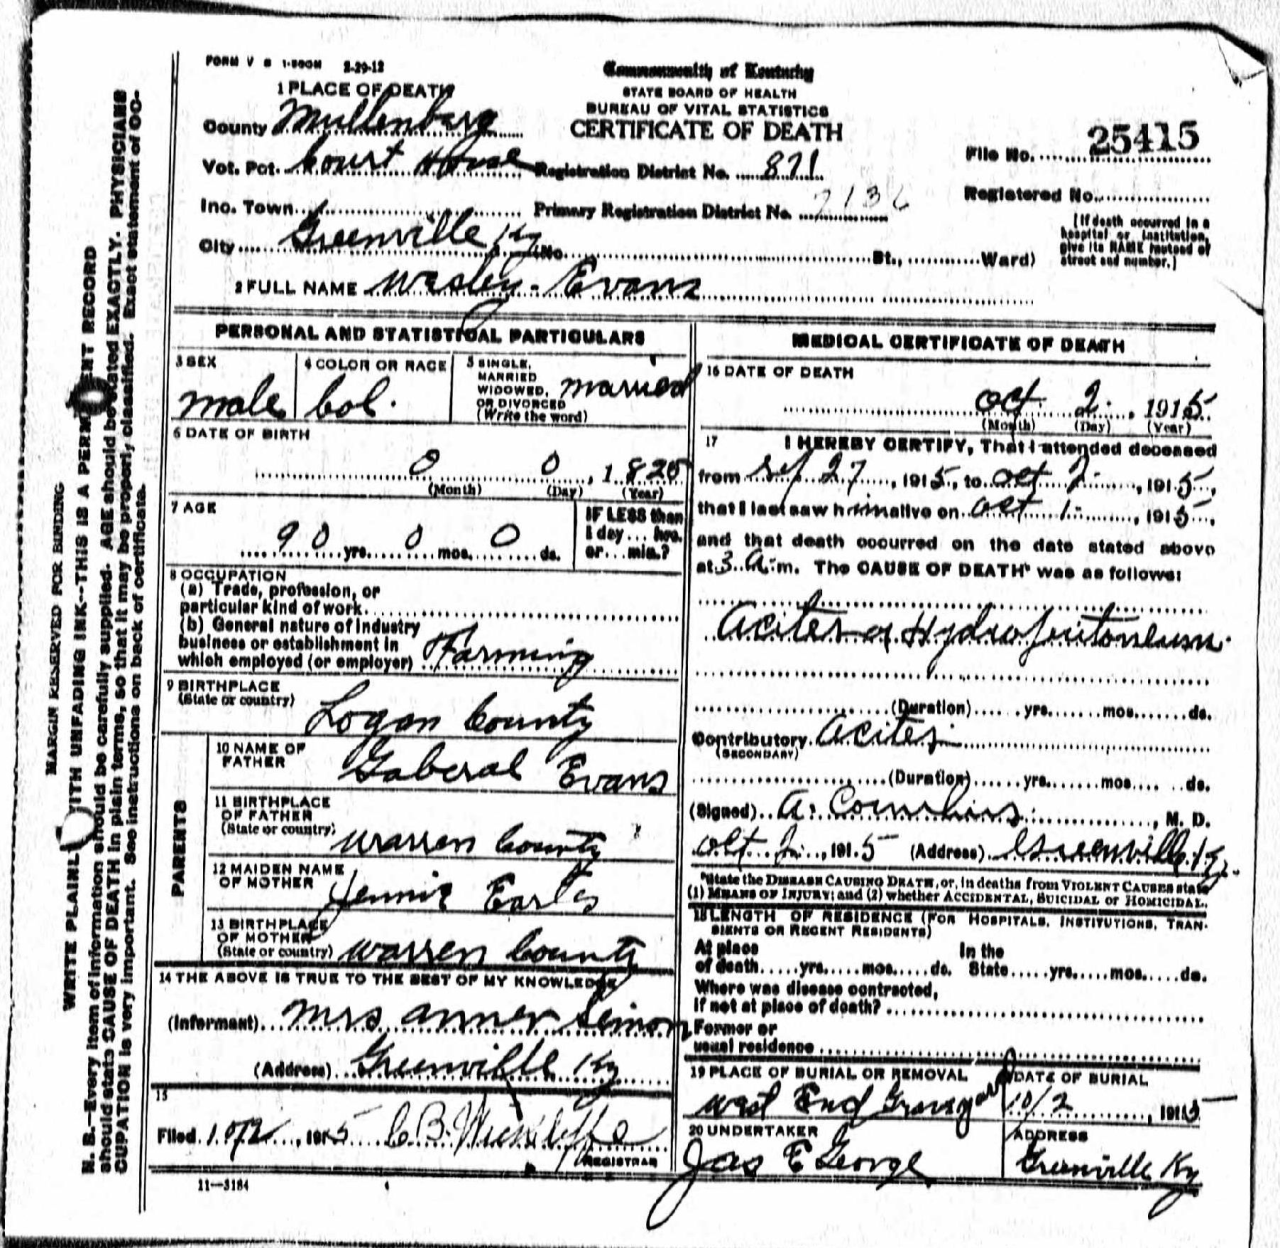 FORM V S 1-500M 2-29-12
Commonwealth of Kentucky
STATE BOARD OF HEALTH
BUREAU OF VITAL STATISTICS
CERTIFICATE OF DEATH
1 PLACE OF DEATH
County Mullenburg
Vot. Pct. Court House Registration District No. 871
Inc. Town Primary Registration District No. 7136
City Greenville Ky No. St., Ward)
File No. 25415
Registered No.
[If death occurred in a
hospital or institution,
give its NAME instead of
street and number.]
2 FULL NAME Wesley Evans
PERSONAL AND STATISTICAL PARTICULARS
3 SEX
male
4 COLOR OR RACE
Col.
5 SINGLE,
MARRIED
WIDOWED,
OR DIVORCED
(Write the word)
married
6 DATE OF BIRTH
0 0, 1825
(Month) (Day) (Year)
7 AGE
90 yrs. 0 mos. 0 ds.
IF LESS than
1 day... hrs.
or... min.?
8 OCCUPATION
(a) Trade, profession, or
particular kind of work
(b) General nature of industry
business or establishment in
which employed (or employer) Farming
9 BIRTHPLACE
(State or country)
Logan County
PARENTS
10 NAME OF
FATHER
Gaberal Evans
11 BIRTHPLACE
OF FATHER
(State or country)
Warren County
12 MAIDEN NAME
OF MOTHER
Jennie Earles
13 BIRTHPLACE
OF MOTHER
(State or country) Warren County
14 THE ABOVE IS TRUE TO THE BEST OF MY KNOWLEDGE
(Informant) Mrs Anner Simon
(Address) Greenville Ky
15
Filed 10/2, 1915 C B Wickliffe
REGISTRAR
11--3184
MEDICAL CERTIFICATE OF DEATH
16 DATE OF DEATH
Oct 2, 1915
(Month) (Day) (Year)
17 I HEREBY CERTIFY, That I attended deceased
from Sep 27, 1915, to Oct 2, 1915,
that I last saw him alive on Oct 1, 1915,
and that death occurred on the date stated above
at 3 A. m. The CAUSE OF DEATH* was as follows:
Acites or Hydroperitoneum.
(Duration) yrs. mos. ds.
Contributory Acites
(SECONDARY)
(Duration) yrs. mos. ds.
(Signed) A. Cornelius, M. D.
Oct 2, 1915 (Address) Greenville, Ky.
*State the DISEASE CAUSING DEATH, or, in deaths from VIOLENT CAUSES state
(1) MEANS OF INJURY; and (2) whether ACCIDENTAL, SUICIDAL or HOMICIDAL.
18 LENGTH OF RESIDENCE (FOR HOSPITALS, INSTITUTIONS, TRAN-
SIENTS OR RECENT RESIDENTS)
At place In the
of death yrs. mos. ds. State yrs. mos. ds.
Where was disease contracted,
if not at place of death?
Former or
usual residence
19 PLACE OF BURIAL OR REMOVAL
West End Graveyard
DATE OF BURIAL
10/2, 1915
20 UNDERTAKER
Jas E George
ADDRESS
Greenville Ky
MARGIN RESERVED FOR BINDING
WRITE PLAINLY WITH UNFADING INK--THIS IS A PERMANENT RECORD
N. B.--Every item of information should be carefully supplied. AGE should be stated EXACTLY. PHYSICIANS
should state CAUSE OF DEATH in plain terms, so that it may be properly classified. Exact statement of OC-
CUPATION is very important. See instructions on back of certificate.